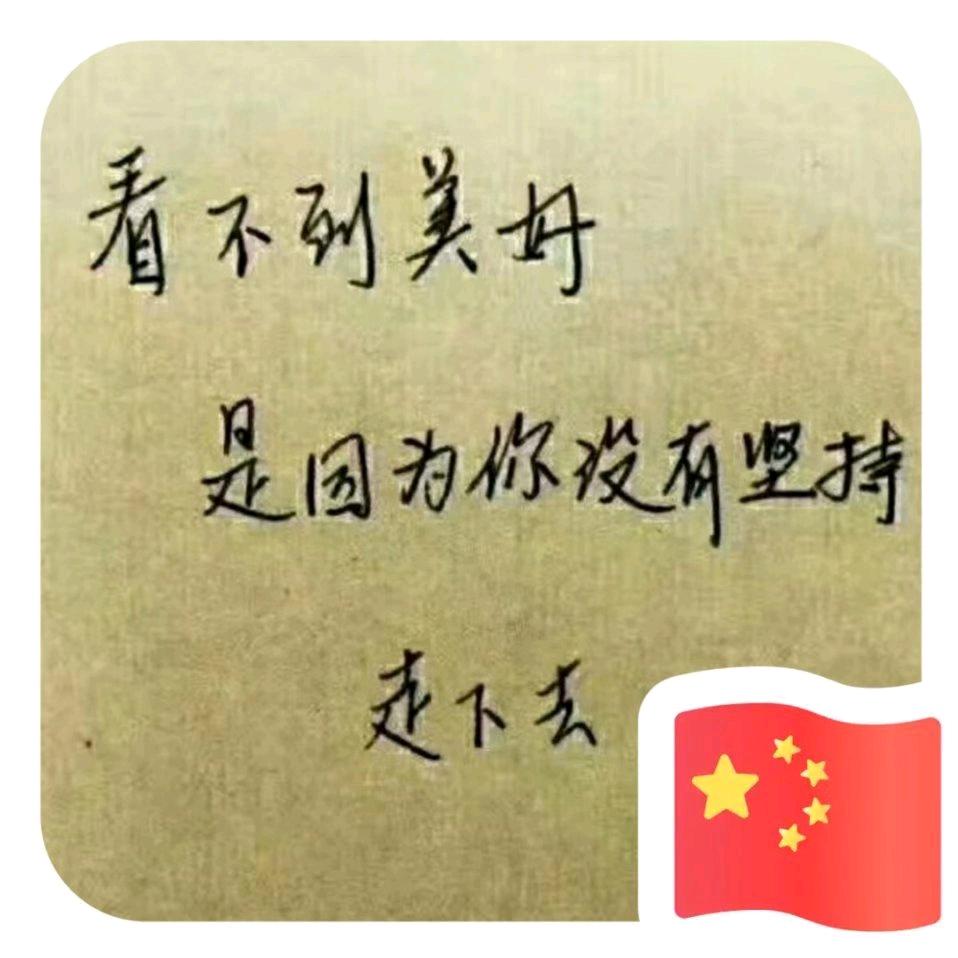 看不到美好
是因为你没有坚持
走下去